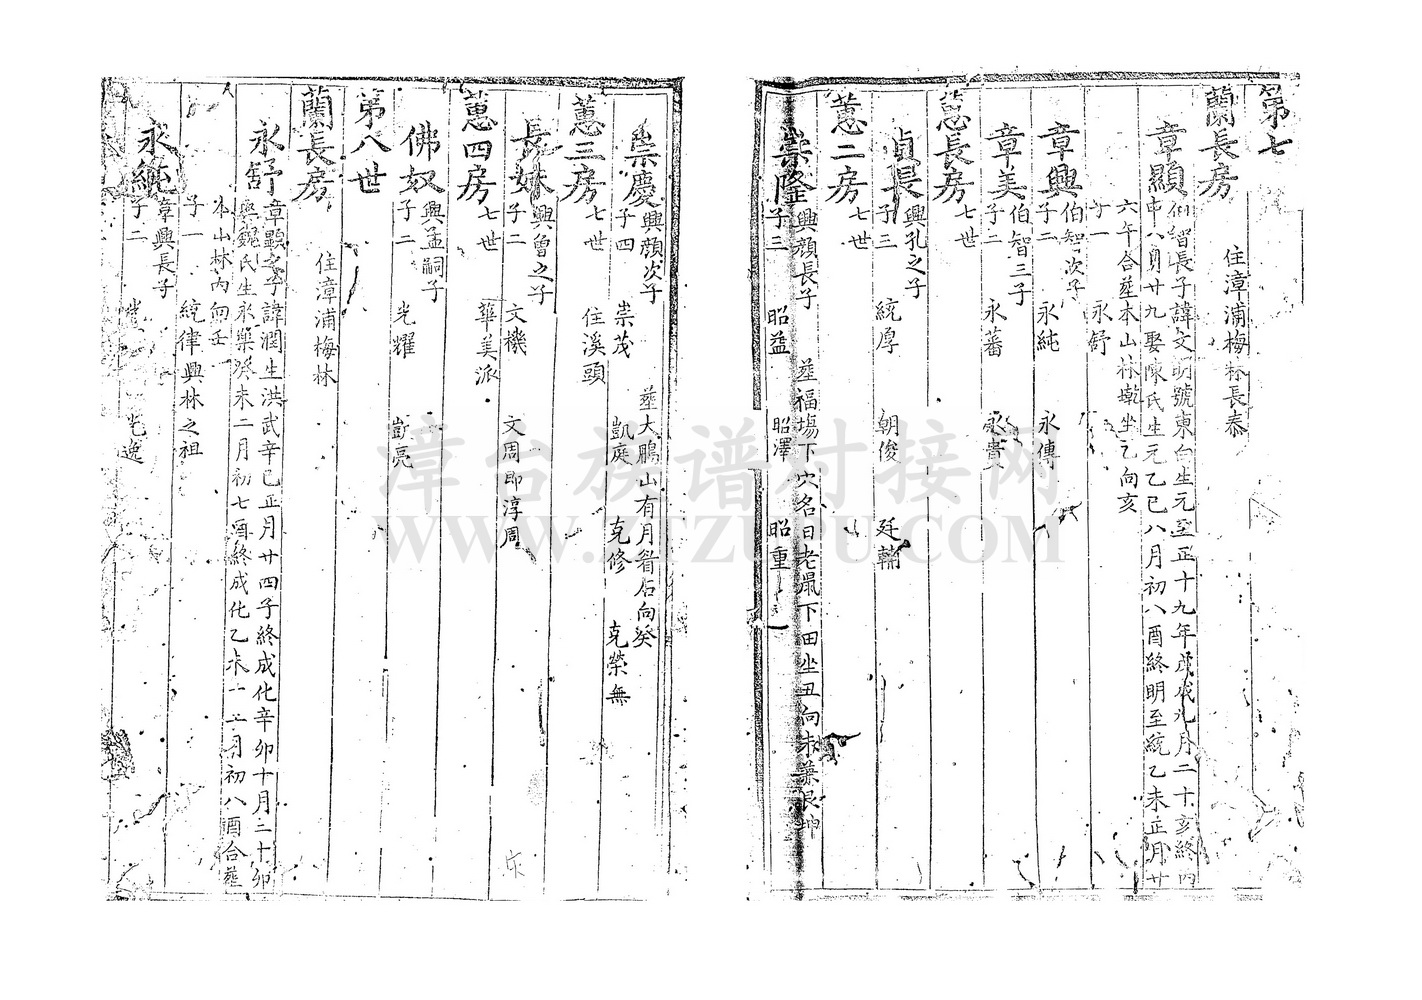 第七
蘭長房 住漳浦梅林長泰
章顯 伯智長子諱文明號東白生元至正十九年戊戌九月二十亥終丙
申八月廿九娶陳氏生元乙巳八月初八酉終明至統乙未正月廿
六午合葬本山林墘坐乙向亥
子一 永舒
章興 伯智次子
子二 永純 永傳
章美 伯智三子
子二 永蕃 永貴
蕙長房 七世
貞長 興孔之子
子三 統厚 朝俊 廷輔
蕙二房 七世
崇隆 興顏長子 葬福塲下穴名曰老鼠下田坐丑向未兼艮坤
子三 昭益 昭澤 昭重
崇慶 興顏次子 葬大鵬山有月眉石向癸
子四 崇茂 凱庭 克修 克榮無
蕙三房 七世 住溪頭
長妹 興曾之子
子二 文機 文周即淳周
蕙四房 七世 華美派
佛奴 興孟嗣子
子二 光耀 凱亮
第八世
蘭長房 住漳浦梅林
永舒 章顯之子諱潤生洪武辛巳正月廿四子終成化辛卯十月二十卯
與魏氏生永樂癸未二月初七酉終成化乙未十二月初八酉合葬
本山林內向壬
子一 統律興林之祖
永純 章興長子
子二 光逸
漳台族谱对接网
WWW.ZTZUPU.COM